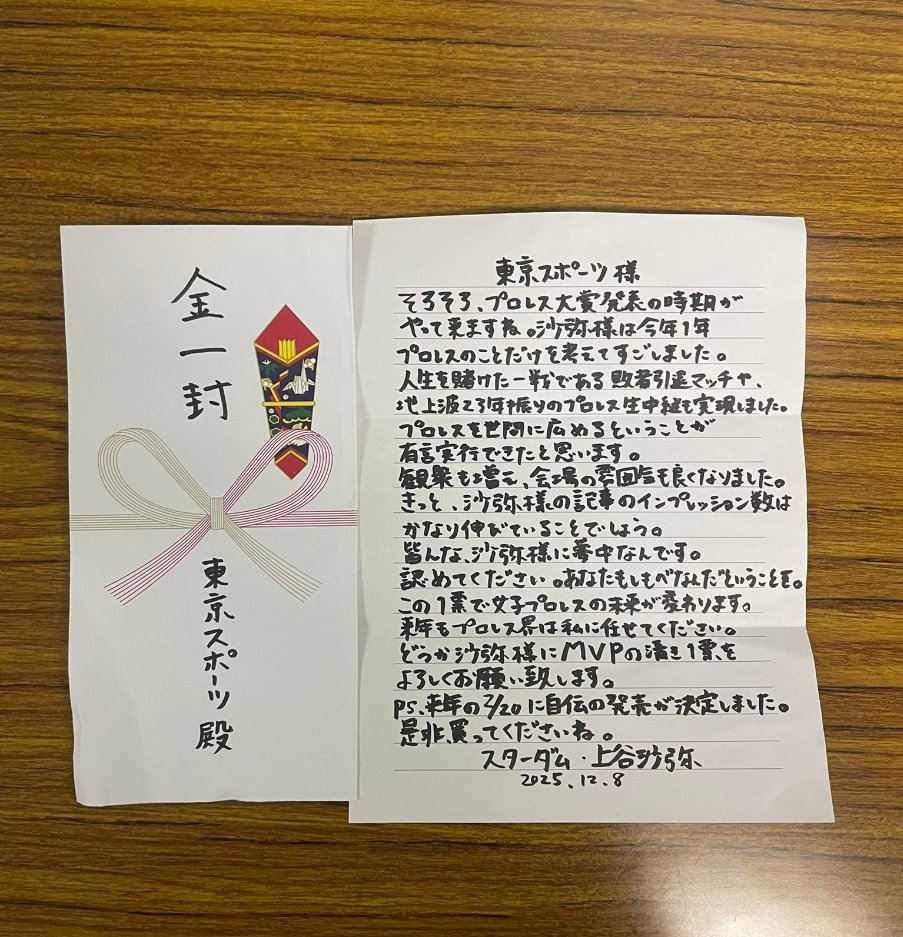 金一封
東京スポーツ殿
東京スポーツ様
そろそろ、プロレス大賞発表の時期が
やって来ますね。沙弥様は今年1年
プロレスのことだけを考えてすごしました。
人生を賭けた一戦である敗者引退マッチや、
地上波23年振りのプロレス生中継も実現しました。
プロレスを世間に広めるということが
有言実行できたと思います。
観衆も増え、会場の雰囲気も良くなりました。
きっと、沙弥様の記事のインプレッション数は
かなり伸びていることでしょう。
皆んな、沙弥様に夢中なんです。
認めてください。あなたもしもべなんだということを。
この1票で女子プロレスの未来が変わります。
来年もプロレス界は私に任せてください。
どうか沙弥様にMVPの清き1票を
よろしくお願い致します。
PS、来年の2/20に自伝の発売が決定しました。
是非、買ってくださいね。
スターダム・上谷沙弥
2025.12.8